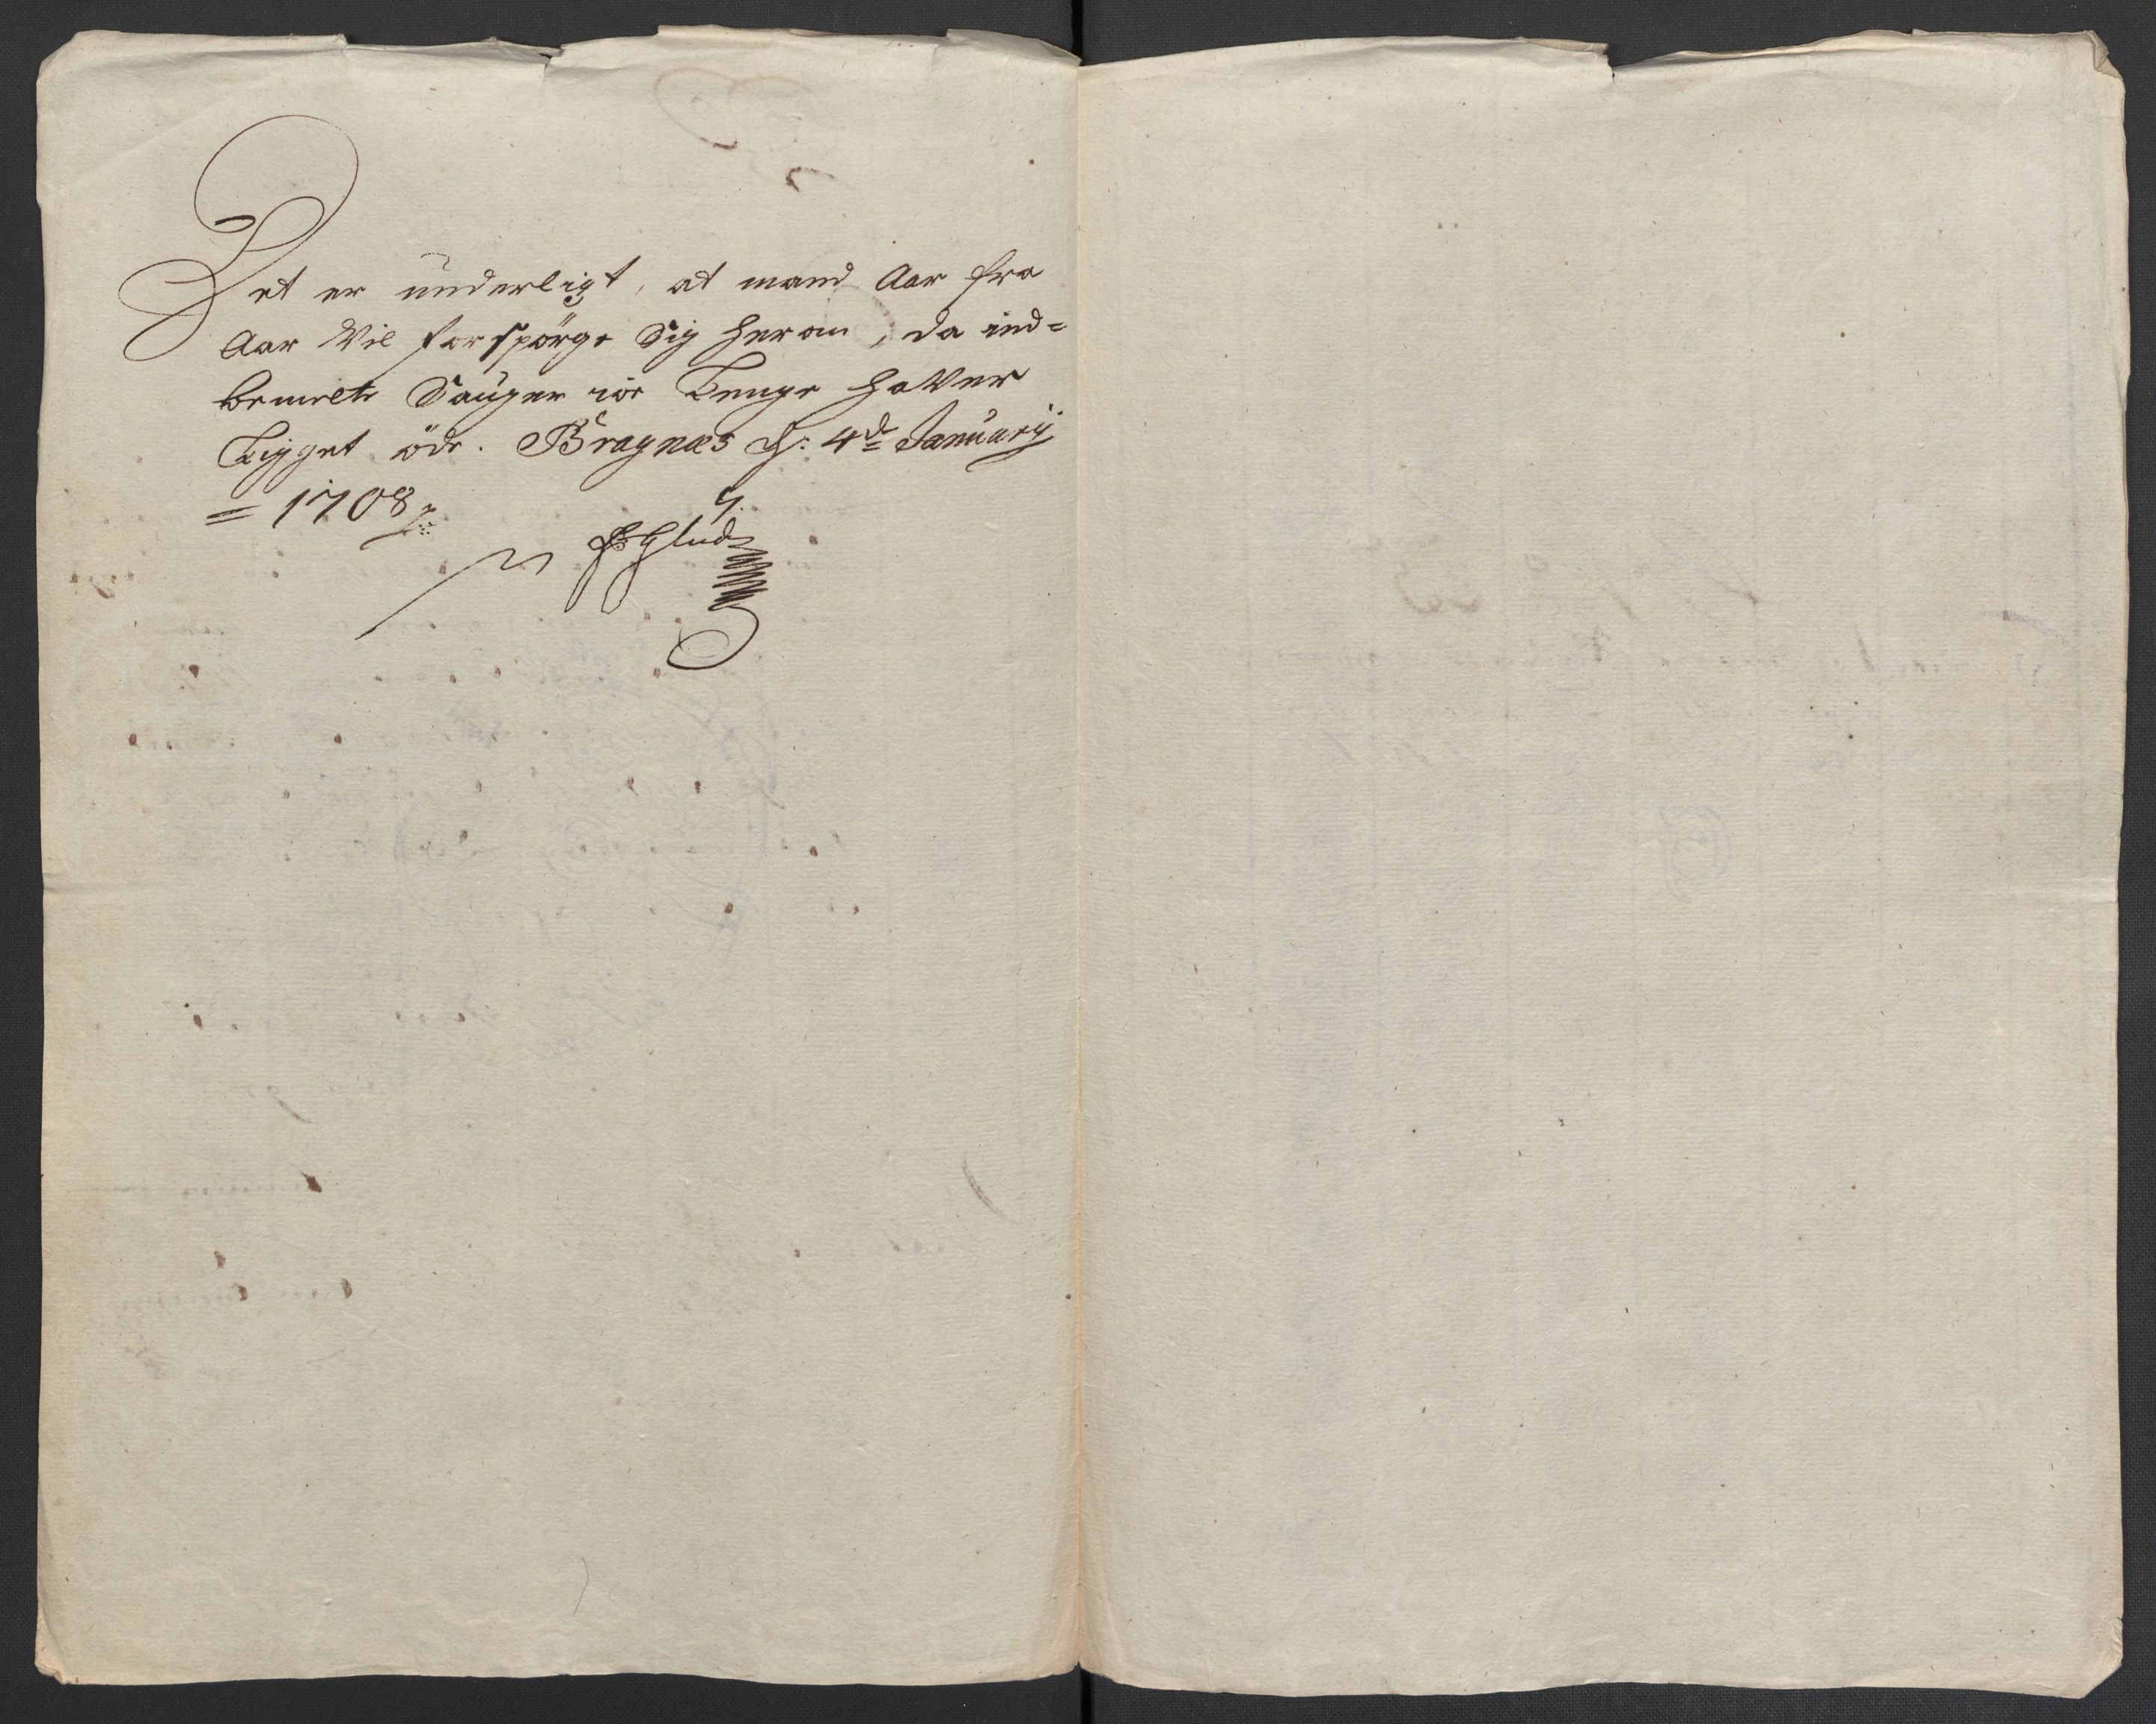 Det er underligt, at mand Aar fra
Aar Vil forspörge Sig herom, da ind-
bemelte Sauger saa Lenge haVer
Ligget öde. Bragnæs d: 4de January
= 1708
Glud